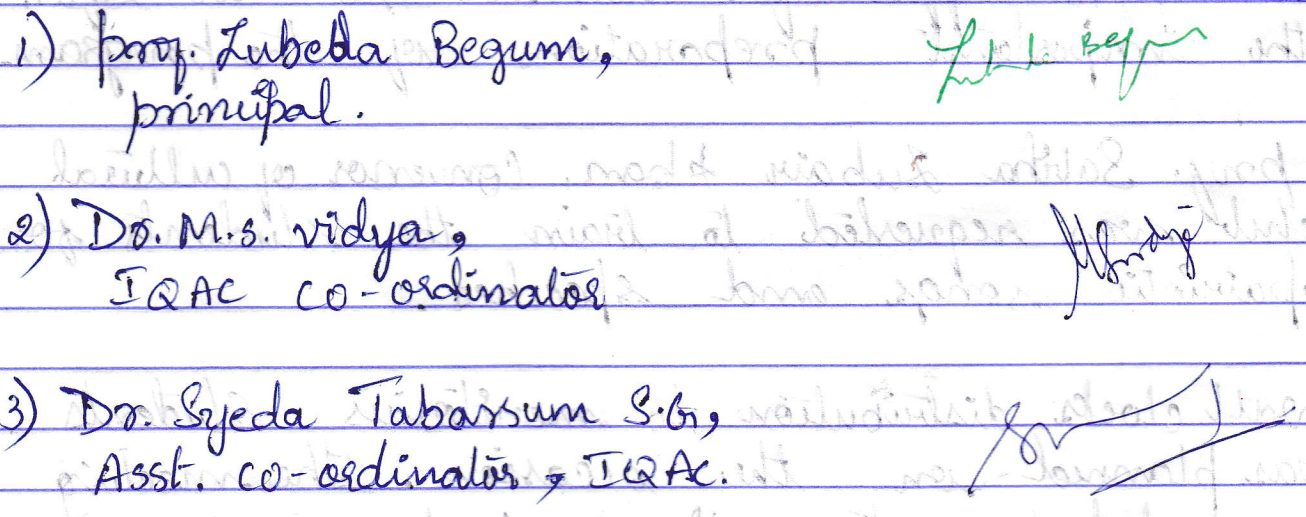 1) prof. Zubeda Begum,
principal.
2) Dr. M.s. vidya,
IQAC co-ordinator
3) Dr. Syeda Tabassum S.G,
Asst. co-ordinator, IQAC.